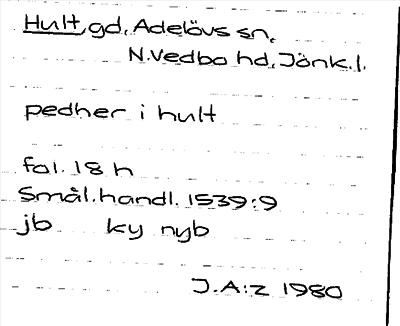 Hult, gd, Adelövs sn,
N.Vedbo hd, Jönk.l.
pedher i hult
fol. 18 h
Smål.handl. 1539:9
jb ky nyb
J.A:z 1980